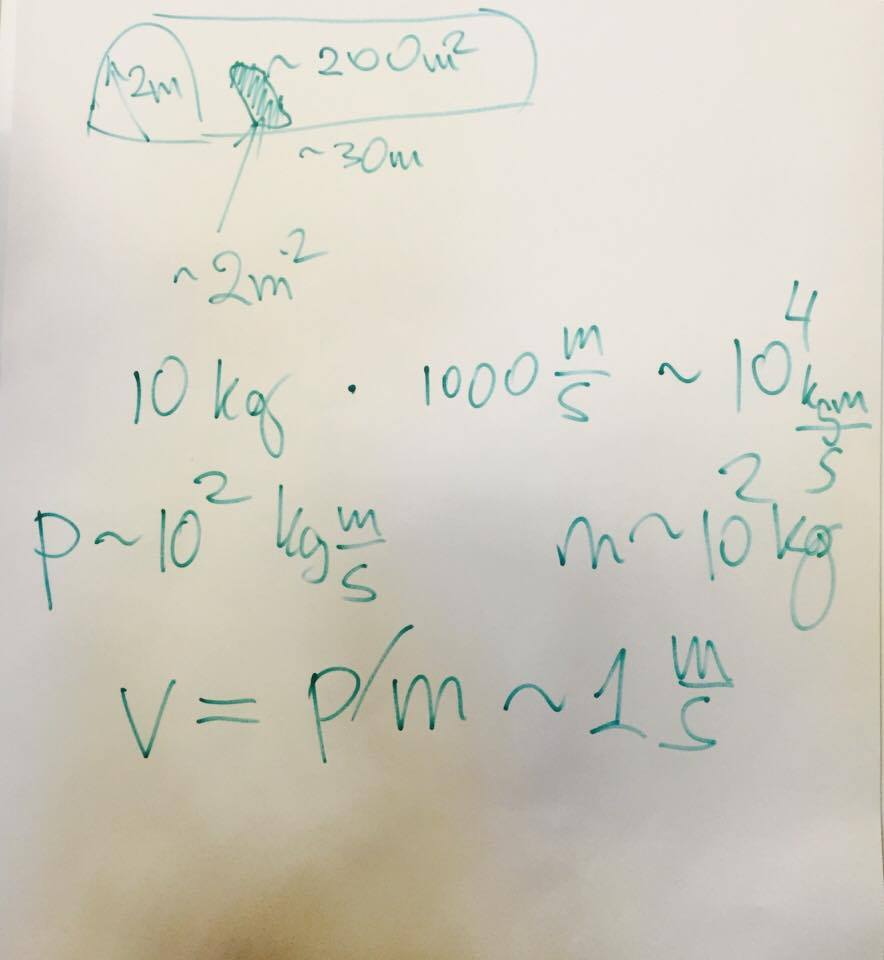 2m ~ 200m²
~30m
~2m²
10 kg · 1000 m/s ~ 10⁴ kgm/s
p ~ 10² kg m/s m ~ 10² kg
v = p/m ~ 1 m/s